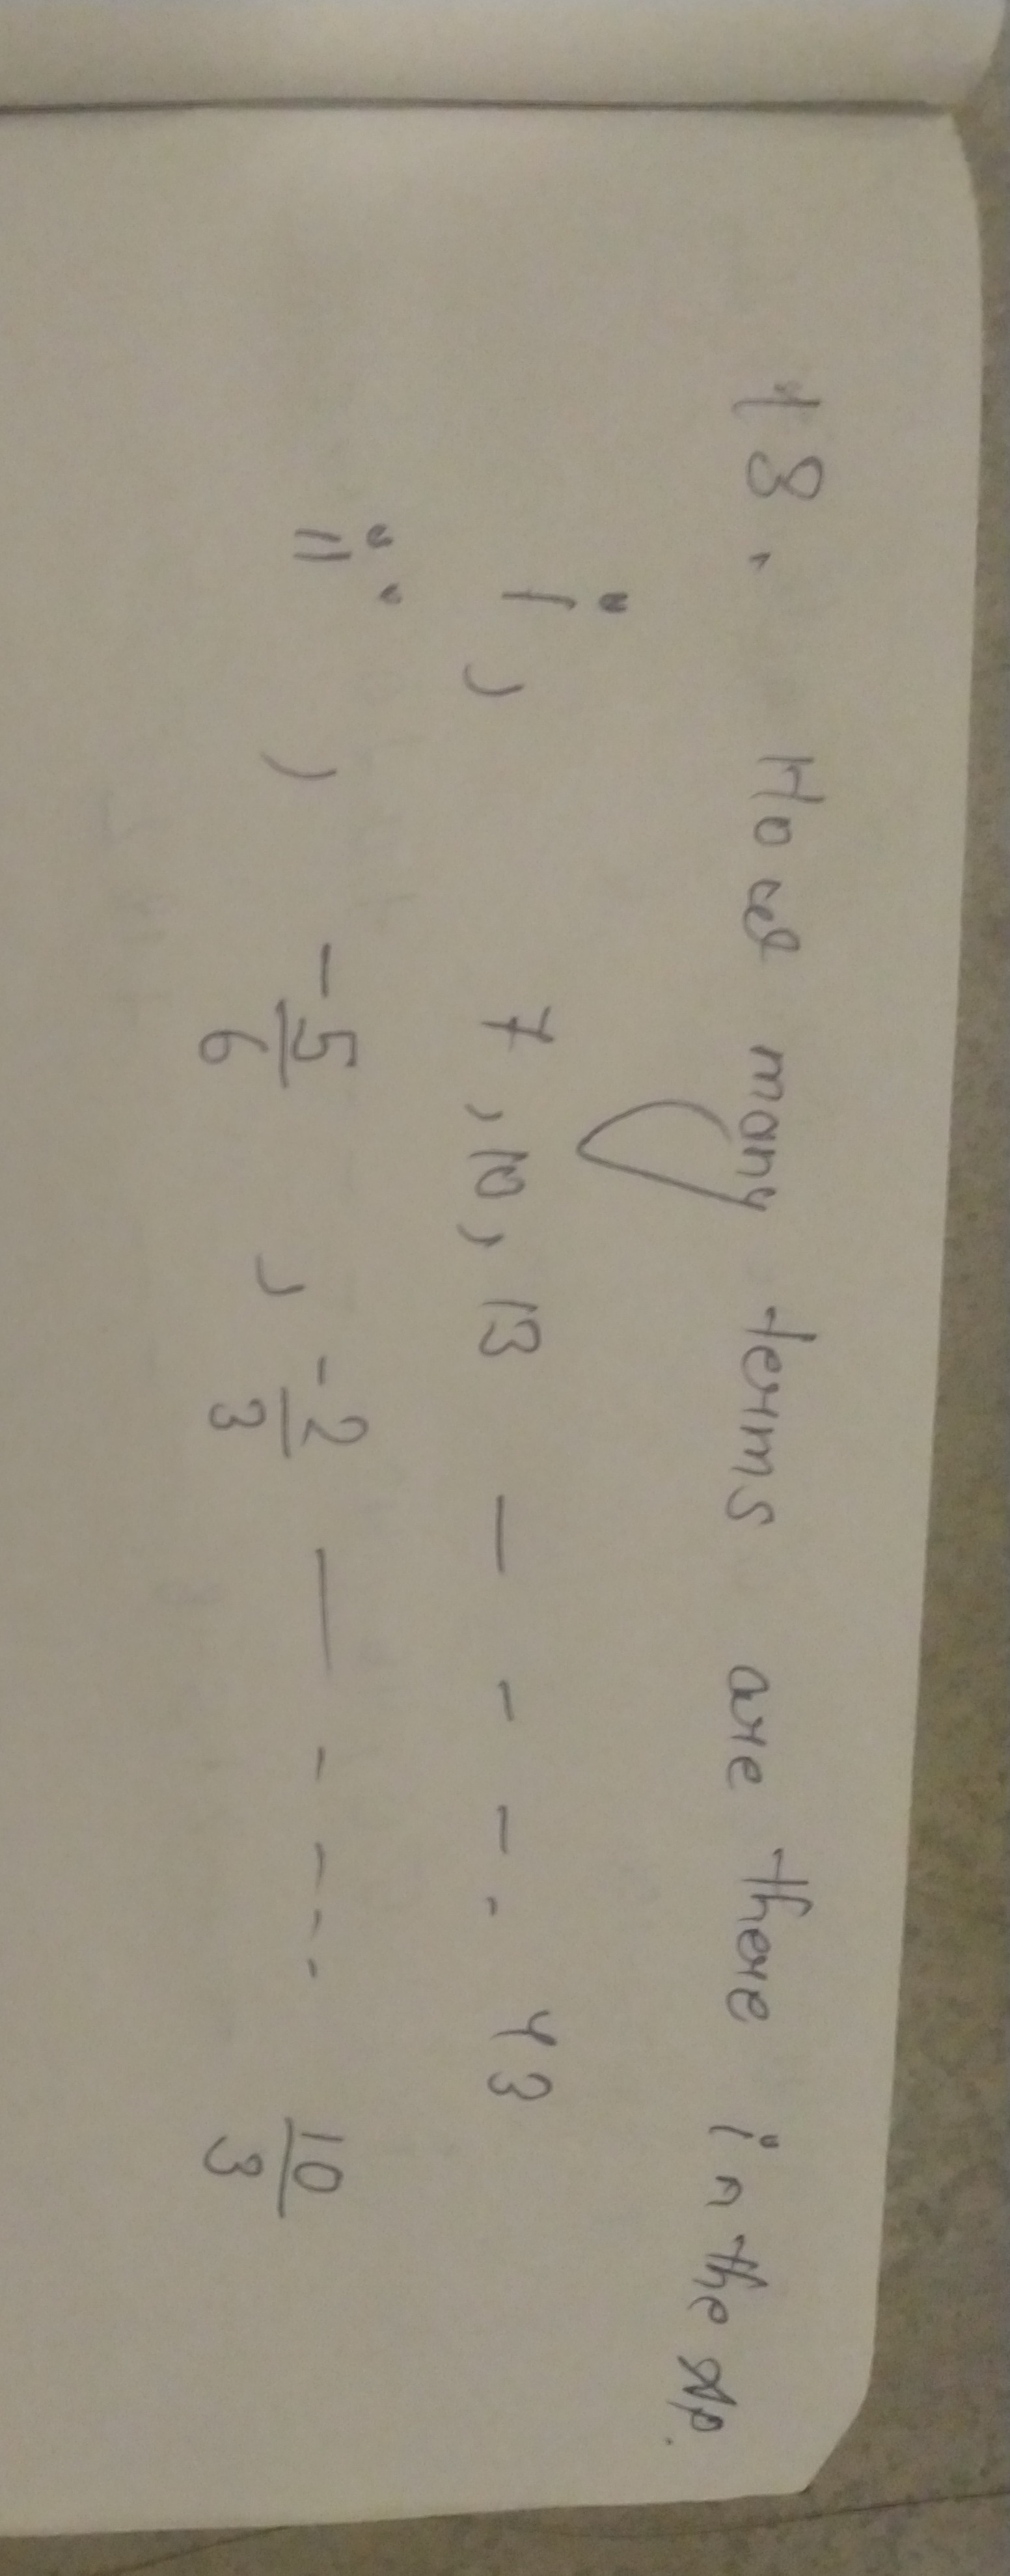 18. How many terms are there in the AP.
i, 7, 10, 13 — - - . 43
ii, -5/6, -2/3 — - - - . 10/3